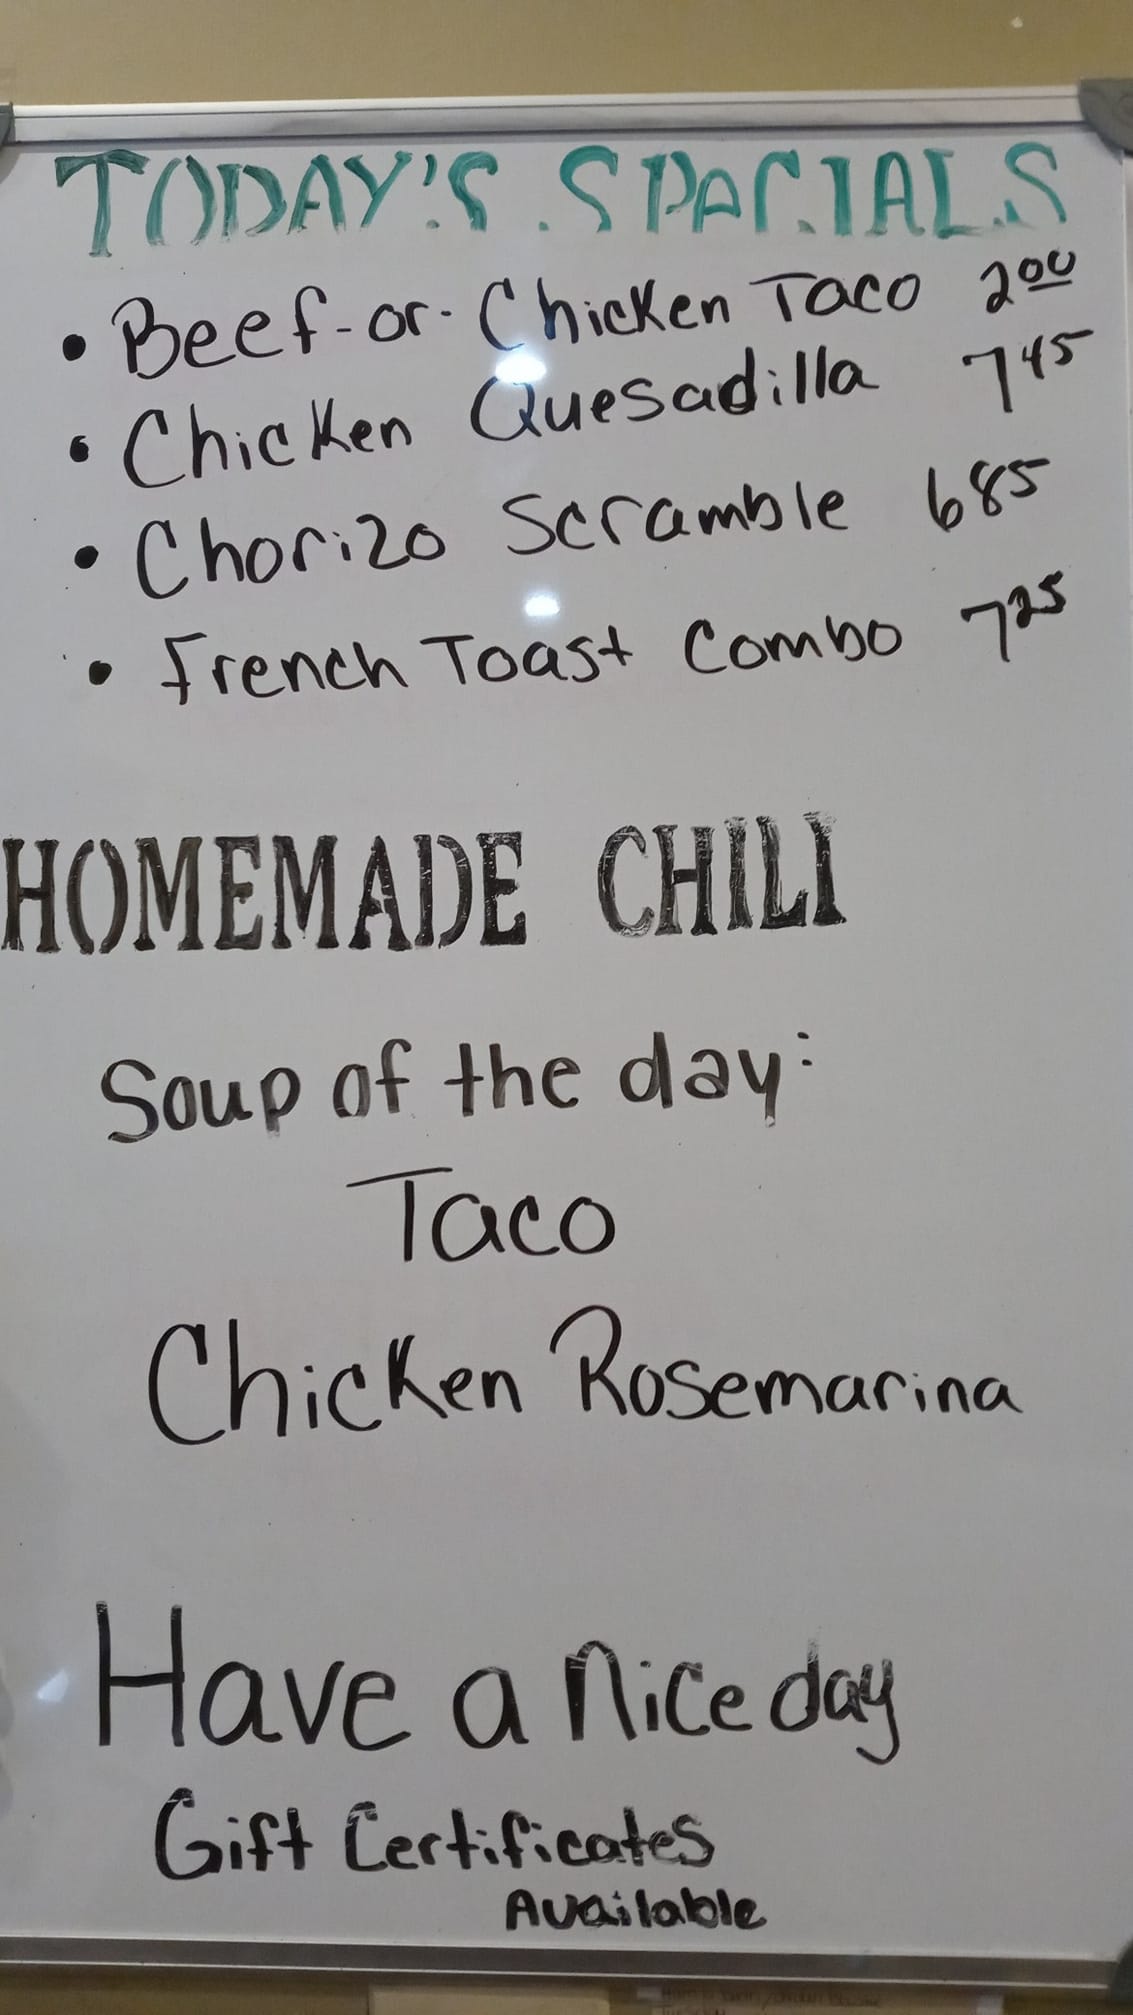 TODAY'S SPACIALS
• Beef-or-Chicken Taco 200
• Chicken Quesadilla 745
• Chorizo Scramble 685
• French Toast Combo 725
HOMEMADE CHILI
Soup of the day:
Taco
Chicken Rosemarina
Have a nice day
Gift Certificates
Available